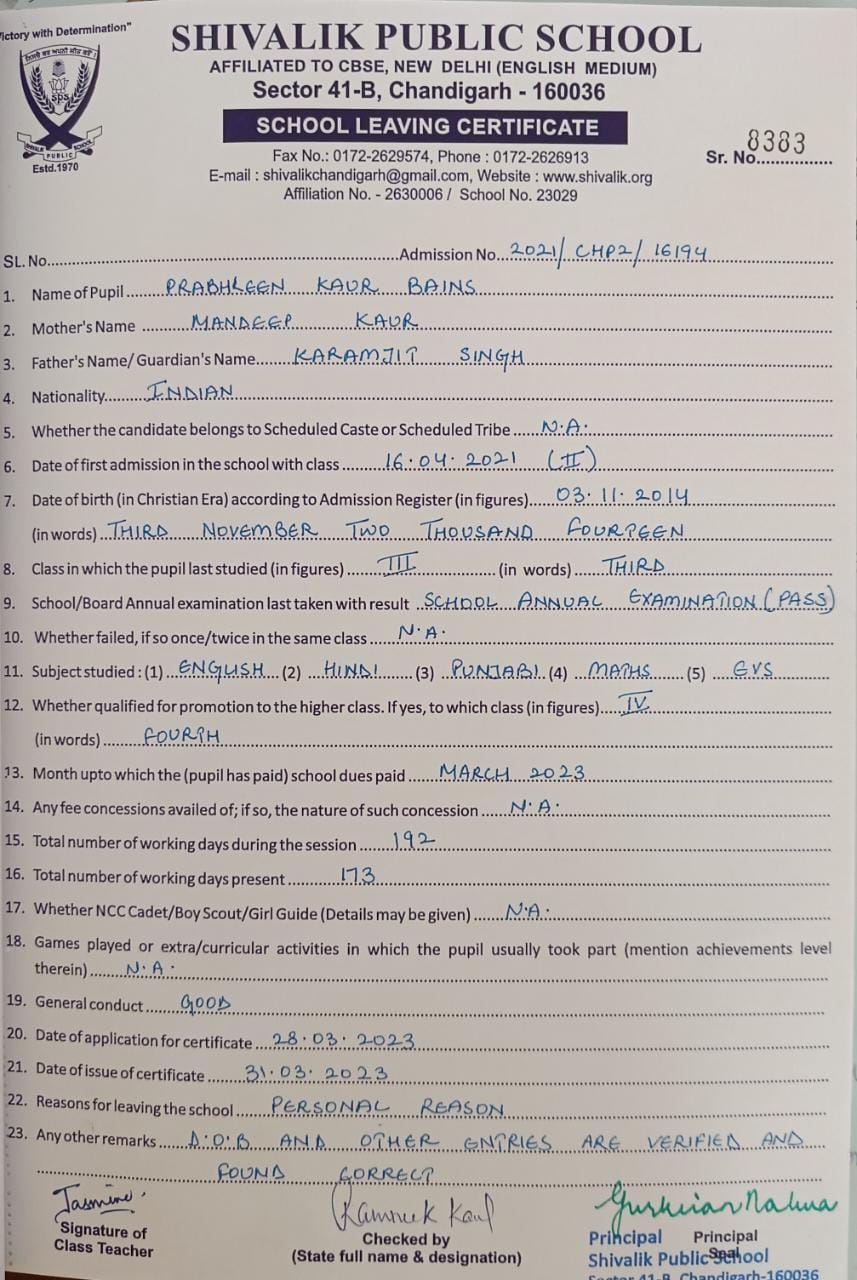 ictory with Determination"
SHIVALIK PUBLIC SCHOOL
AFFILIATED TO CBSE, NEW DELHI (ENGLISH MEDIUM)
Sector 41-B, Chandigarh - 160036
SCHOOL LEAVING CERTIFICATE
SPS
SHIVALIK PUBLIC SCHOOL
Estd.1970
Fax No.: 0172-2629574, Phone : 0172-2626913
E-mail : shivalikchandigarh@gmail.com, Website : www.shivalik.org
Affiliation No. - 2630006 / School No. 23029
Sr. No. 8383
SL. No. Admission No. 2021/ CHP2/ 16194
1. Name of Pupil PRABHLEEN KAUR BAINS
2. Mother's Name MANDEEP KAUR
3. Father's Name/ Guardian's Name KARAMJIT SINGH
4. Nationality INDIAN
5. Whether the candidate belongs to Scheduled Caste or Scheduled Tribe N.A.
6. Date of first admission in the school with class 16.04.2021 (II)
7. Date of birth (in Christian Era) according to Admission Register (in figures) 03.11.2014
(in words) THIRD NOVEMBER TWO THOUSAND FOURTEEN
8. Class in which the pupil last studied (in figures) III (in words) THIRD
9. School/Board Annual examination last taken with result SCHOOL ANNUAL EXAMINATION (PASS)
10. Whether failed, if so once/twice in the same class N.A.
11. Subject studied : (1) ENGLISH (2) HINDI (3) PUNJABI (4) MATHS (5) EVS
12. Whether qualified for promotion to the higher class. If yes, to which class (in figures) IV
(in words) FOURTH
13. Month upto which the (pupil has paid) school dues paid MARCH 2023
14. Any fee concessions availed of; if so, the nature of such concession N.A.
15. Total number of working days during the session 192
16. Total number of working days present 173
17. Whether NCC Cadet/Boy Scout/Girl Guide (Details may be given) N.A.
18. Games played or extra/curricular activities in which the pupil usually took part (mention achievements level
therein) N.A.
19. General conduct GOOD
20. Date of application for certificate 28.03.2023
21. Date of issue of certificate 31.03.2023
22. Reasons for leaving the school PERSONAL REASON
23. Any other remarks D.O.B AND OTHER ENTRIES ARE VERIFIED AND
FOUND CORRECT
Jasmine
Signature of
Class Teacher
Kaur
Checked by
(State full name & designation)
Principal
Seal
Principal
Shivalik Public School
Sector 41-B, Chandigarh-160036